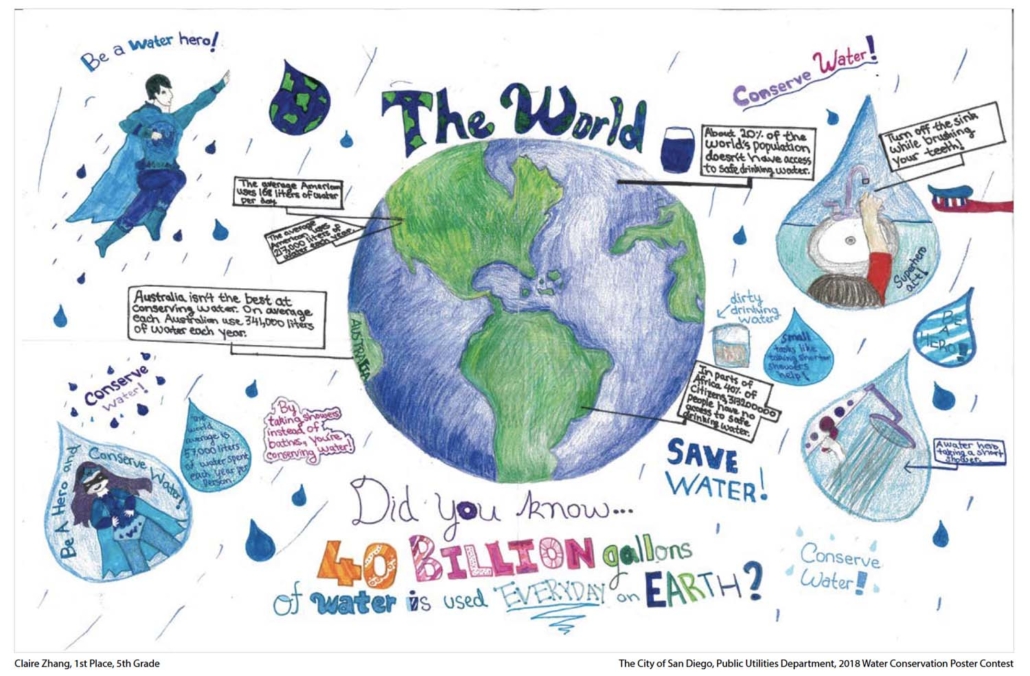 Be a water hero!
The World
Conserve Water!
About 20% of the
world's population
doesn't have access
to safe drinking water.
Turn off the sink
while brushing
your teeth!
The average American
uses 168 liters of water
per day.
The average
American uses
217,000 liters of
water each year.
Superhero
act!
Australia isn't the best at
conserving water. On average
each Australian use 341,000 liters
of water each year.
AUSTRALIA
dirty
drinking
water
Small
tasks like
taking shorter
showers
help!
BE
A
HERO!!
Conserve
water!
In parts of
Africa 40% of
Citizens, 313200000
people have no
access to safe
drinking water.
By
taking showers
instead of
baths, you're
conserving water!
The
world
average is
57,000 liters
of water spent
each year per
person.
Be A Hero and
Conserve Water!
SAVE
WATER!
A water hero
taking a short
shower.
Did you know...
40 BILLION gallons
of water is used EVERYDAY on EARTH?
Conserve
Water!!
Claire Zhang, 1st Place, 5th Grade
The City of San Diego, Public Utilities Department, 2018 Water Conservation Poster Contest